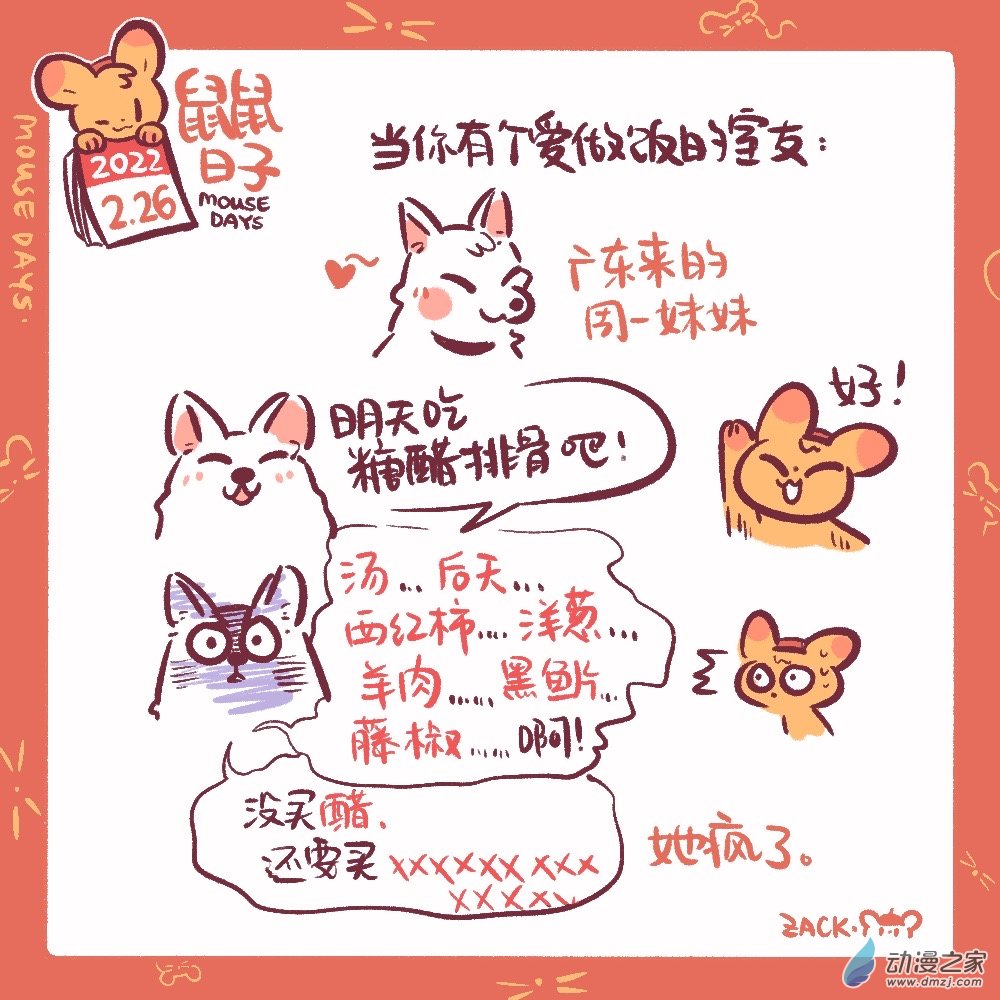 鼠鼠
日子
MOUSE
DAYS
2022
2.26
MOUSE DAYS.
当你有个爱做饭的室友:
广东来的
周一妹妹
明天吃
糖醋排骨吧!
好!
汤... 后天...
西红柿.... 洋葱...
羊肉..... 黑鱼片...
藤椒..... 啊!
没买醋.
还要买 XXXXXX XXX
XXXXX
她疯了。
ZACK.
动漫之家
www.dmzj.com